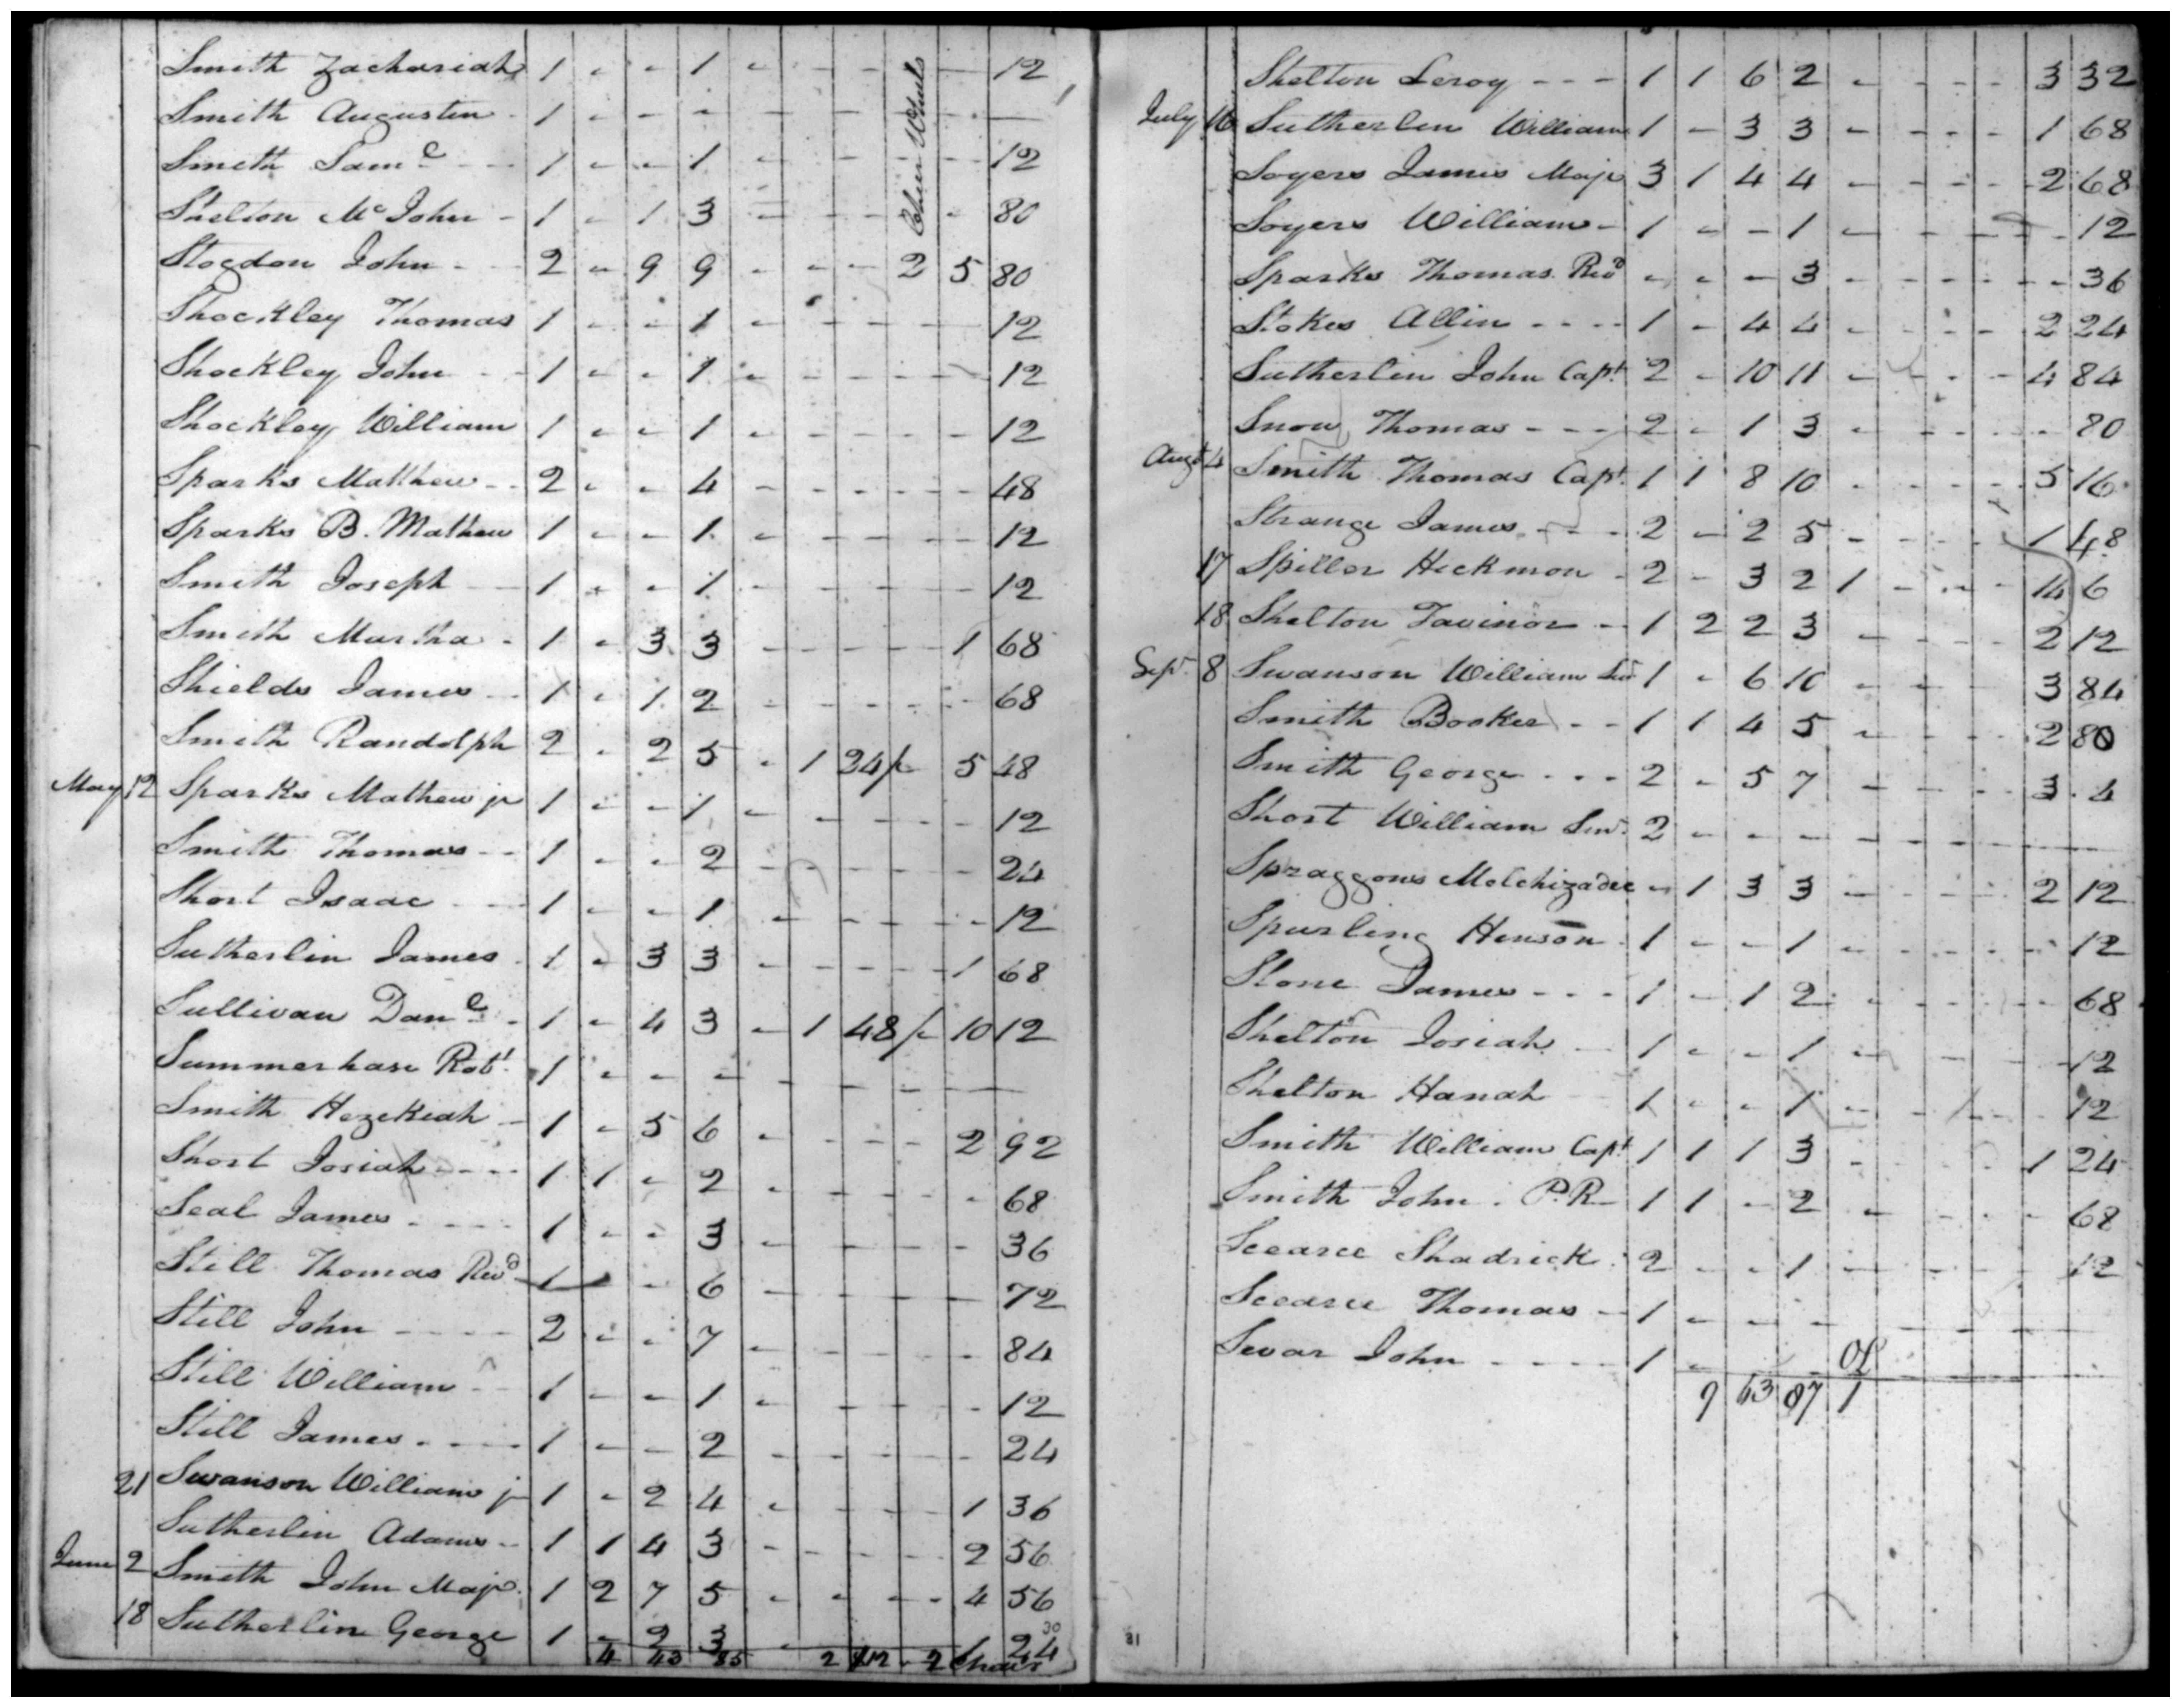 Smith Zachariah 1 - - 1 - - - - 12
Smith Augustin - 1 - - - - - - -
Smith Saml - - 1 - - 1 - - - - 12
Shelton Mc John - 1 - 1 3 - - - - 80
Chair Wheels
Stogdon John - 2 - 9 9 - - - 2 5 80
Shockley Thomas 1 - - 1 - - - - - 12
Shockley John - - 1 - - 1 - - - - - 12
Shockley William 1 - - 1 - - - - - 12
Sparks Matthew - - 2 - - 4 - - - - - 48
Sparks B. Mathew 1 - - 1 - - - - - 12
Smith Joseph - 1 - - 1 - - - - - 12
Smith Martha - 1 - 3 3 - - - - 1 68
Shields James - - 1 - 1 2 - - - - - 68
Smith Randolph 2 - 2 5 - 1 24/- 5 48
May 12 Sparks Mathew jr 1 - - 1 - - - - - 12
Smith Thomas - - 1 - - 2 - - - - - 24
Short Isaac - - 1 - - 1 - - - - - 12
Sutherlin James - 1 - 3 3 - - - - 1 68
Sullivan Danl - 1 - 4 3 - 1 48/- 10 12
Summerhase Robt 1 - - - - - - -
Smith Hezekiah - 1 - 5 6 - - - - 2 92
Short Josiah - - - 1 1 - 2 - - - - - 68
Seal James - - - - 1 - - 3 - - - - - 36
Still Thomas Revd 1 - - 6 - - - - - 72
Still John - - - - 2 - - 7 - - - - - 84
Still William - - 1 - - 1 - - - - - 12
Still James - - - - 1 - - 2 - - - - - 24
21 Swanson William jr 1 - 2 4 - - - - 1 36
Sutherlin Adams - - 1 1 4 3 - - - - 2 56
June 2 Smith John Majr. 1 2 7 5 - - - - 4 56
18 Sutherlin George 1 - 2 3 - 1 24
30
4 43 85 2 - 2 Chair
Shelton Leroy - - - 1 1 6 2 - - - - 3 32
July 16 Sutherlin William 1 - 3 3 - - - - 1 68
Soyers James Majr 3 1 4 4 - - - - 2 68
Soyers William - 1 - - 1 - - - - - 12
Sparks Thomas Revd - - - 3 - - - - - 36
Stokes Allin - - - - 1 - 4 4 - - - - 2 24
Sutherlin John Capt. 2 - 10 11 - - - - 4 84
Snow Thomas - - - 2 - 1 3 - - - - - 80
Augt 4 Smith Thomas Capt. 1 1 8 10 - - - - 5 16
Strange James - - - 2 - 2 5 - - - - 1 48
17 Spiller Hickmon - 2 - 3 2 1 - - - 14 6
18 Shelton Tavinor - - 1 2 2 3 - - - - 2 12
Sepr. 8 Swanson William Senr 1 - 6 10 - - - 3 84
Smith Booker - - 1 1 4 5 - - - - 2 80
Smith George - - - 2 - 5 7 - - - - 3 . 4
Short William Senr. 2 - - - - - - - -
Spraggons Melchizadec - 1 3 3 - - - - 2 12
Spurling Henson - 1 - - 1 - - - - - 12
Stone James - - - 1 - 1 2 - - - - - 68
Shelton Josiah - 1 - - 1 - - - - 12
Shelton Hanah 1 - - 1 - - - - - 12
Smith William Capt 1 1 1 3 - - - - 1 24
Smith John . P.R - 1 1 - 2 - - - - - 68
Scearce Shadrick . 2 - - 1 - - - - - 12
Scearce Thomas - 1 - - - - - - -
Sevar John - - - - 1 - - -
9 63 87 1
81